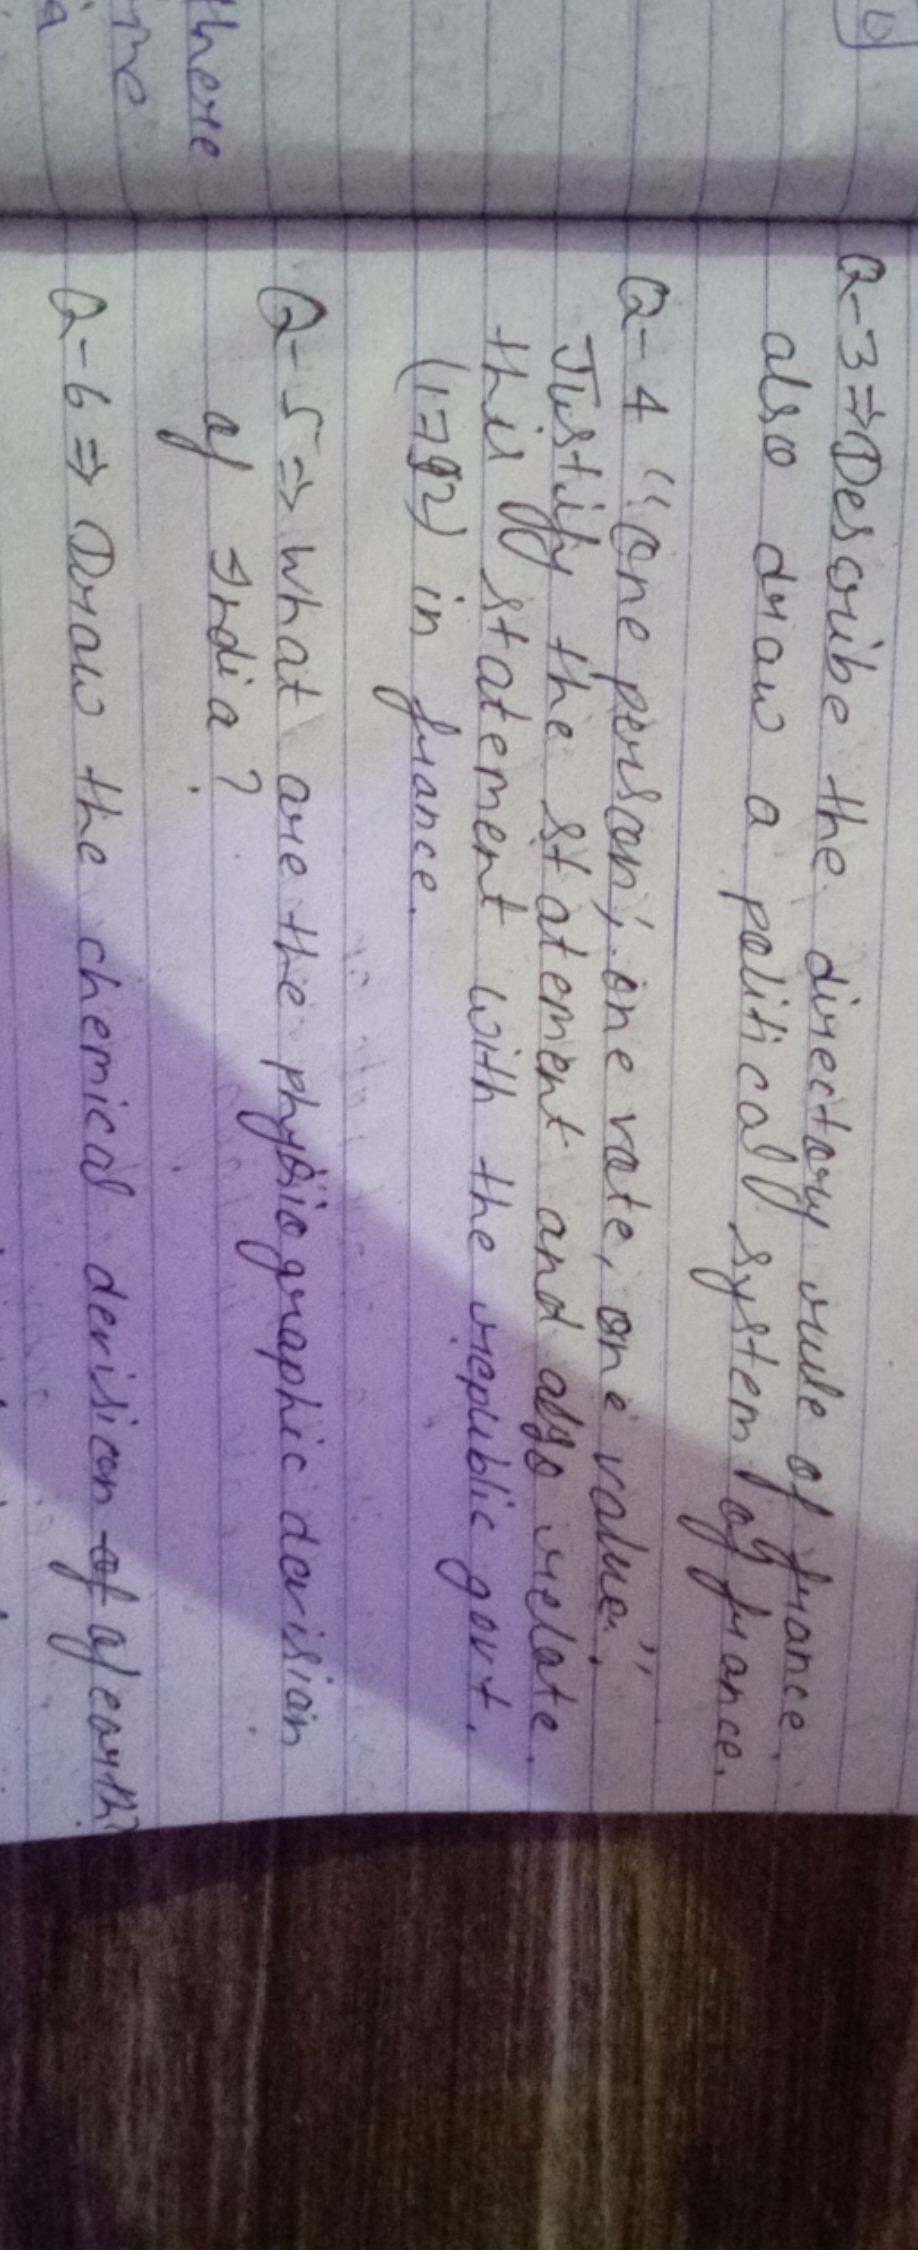 there
me
a
Q-3⇒ Describe the directory rule of france.
also draw a political system of france.
Q-4 "One person, one vote, one value."
Justify the statement and also relate
this statement with the republic govt.
(1792) in france.
Q-5⇒ what are the physiographic devision
of India?
Q-6⇒ Draw the chemical devision of of earth?